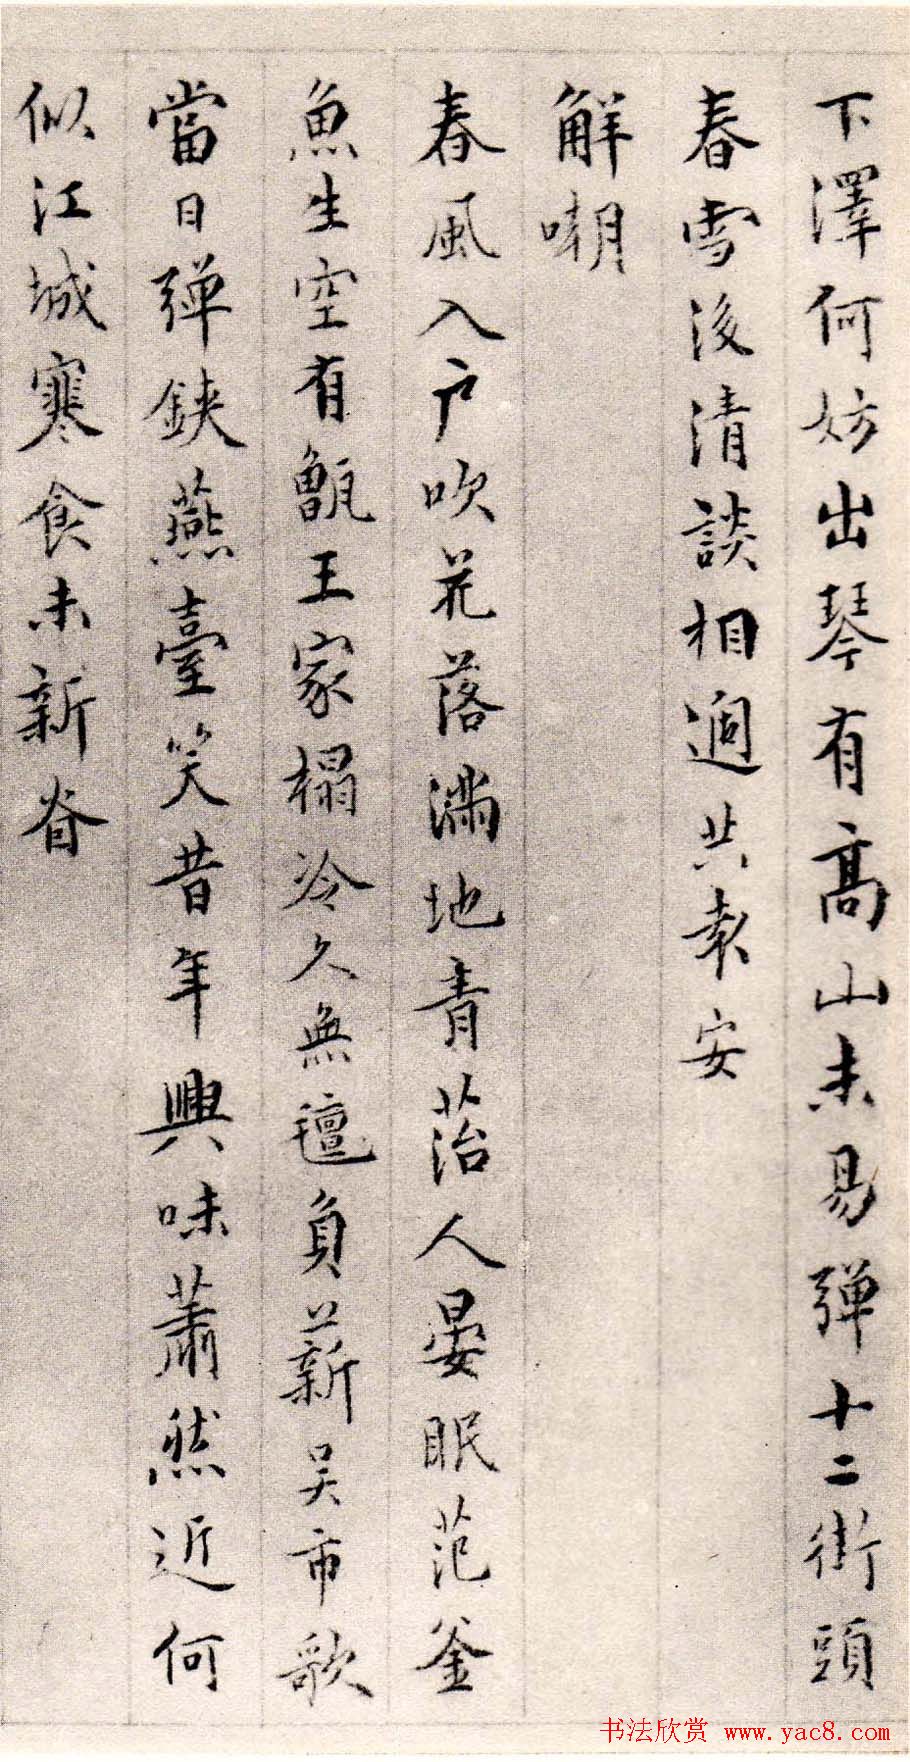 下澤何妨出琴有高山未易彈十二街頭
春雪後清談相過共袁安
解嘲
春風入户吹花落滿地青菭人晏眠范釜
魚生空有甑王家榻冷久無氊負薪吴市歌
當日彈鋏燕臺笑昔年興味蕭然近何
似江城寒食未新
书法欣赏 www.yac8.com